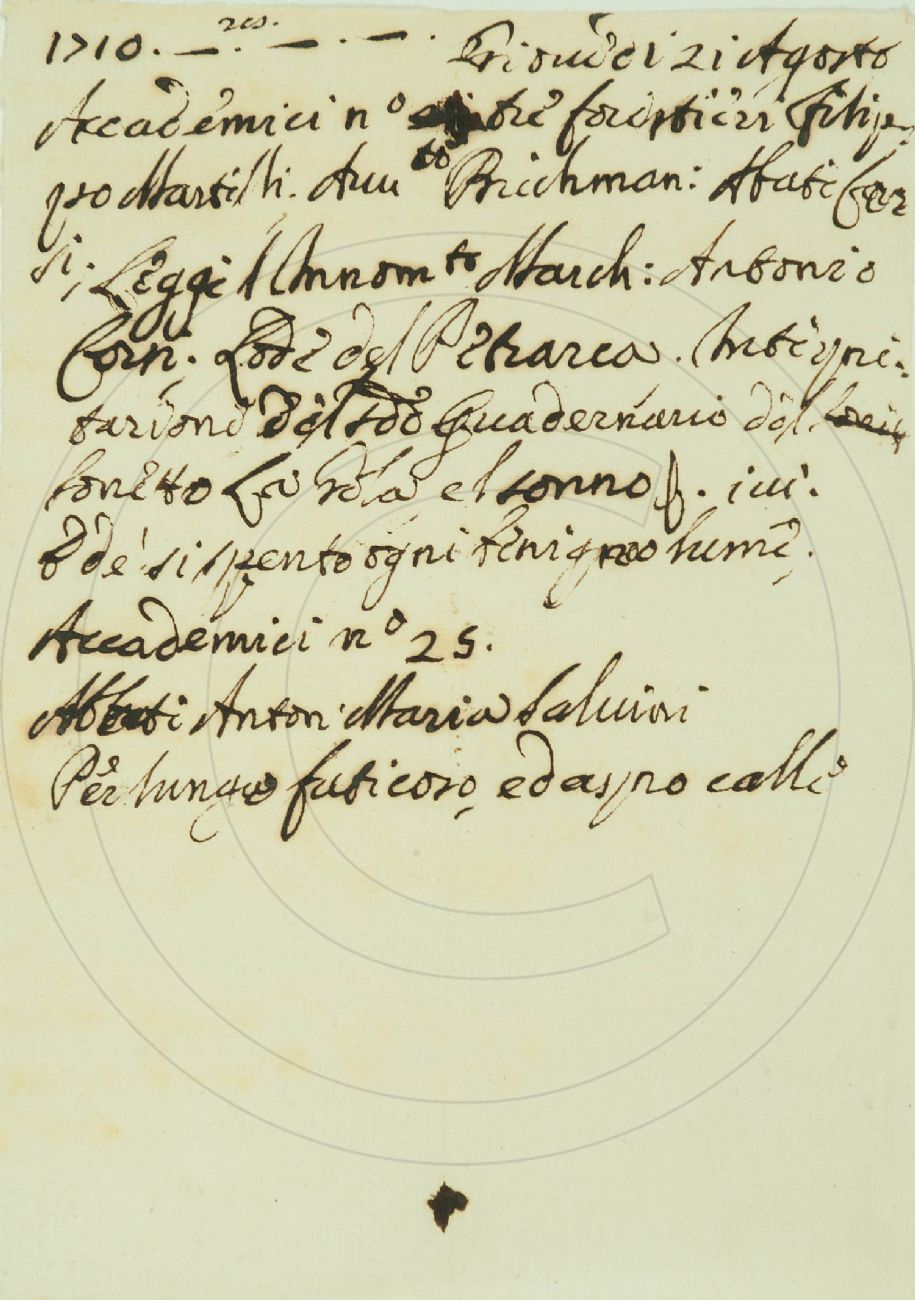 1710. — res. — . — .
Griouedi 21 Agosto
Accademici n.º tre forestieri Filip-
po Martelli. Auu.to Brichman: Abati Cor
si; Leggé l'Innom.to March: Antonio
Corsi. Lode del Petrarca. Interpre-
tazione del sdo Quadernario del
Sonetto La Gola el sonno p. iui.
Ed é si spento ogni benigno lume.
Accademici n.º 25.
Abati Anton Maria Saluini
Per lungo faticoso, ed aspro calle